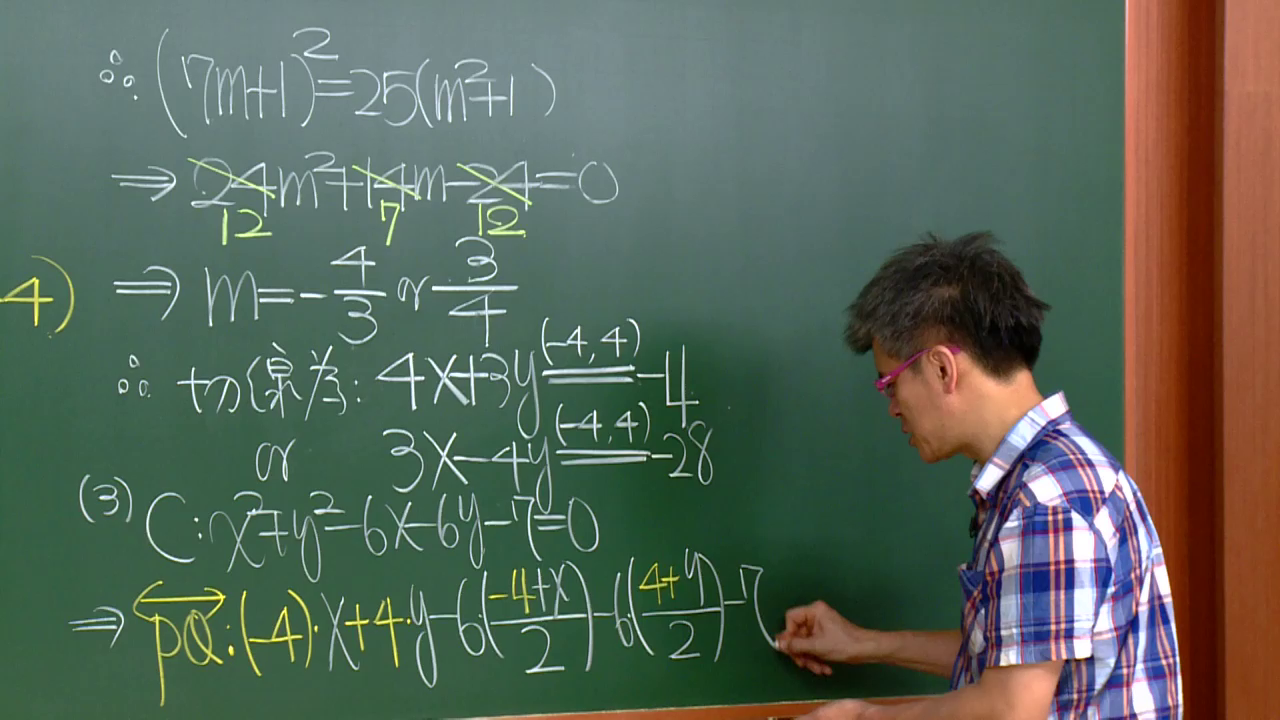 ∴ (7m+1)²=25(m²+1)
⇒ 24m²+14m-24=0
12 7 12
4) ⇒ m=-4/3 or 3/4
∴ 切線為: 4x+3y=(-4,4) -4
or 3x-4y=(-4,4) -28
(3) C: x²+y²-6x-6y-7=0
⇒ PQ: (-4)·x+4·y-6·(-4+x/2)-6·(4+y/2)-7